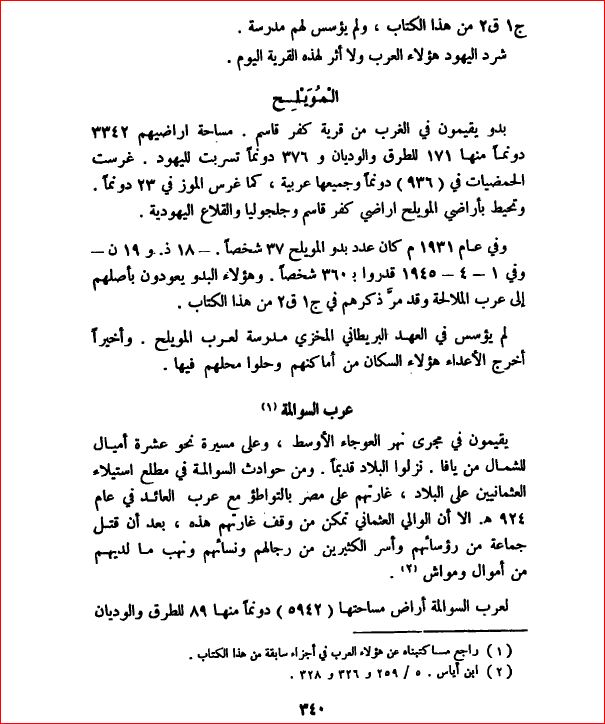 ج١ ق٢ من هذا الكتاب ، ولم يؤسس لهم مدرسة .
شرد اليهود هؤلاء العرب ولا أثر لهذه القرية اليوم .
المُوَيْلِح
بدو يقيمون في الغرب من قرية كفر قاسم . مساحة اراضيهم ٣٣٤٢
دونماً منها ١٧١ للطرق والوديان و ٣٧٦ دونماً تسربت لليهود . غرست
الحمضيات في ( ٩٣٦ ) دونماً وجميعها عربية ، كما غرس الموز في ٢٣ دونماً .
وتحيط بأراضي المويلح اراضي كفر قاسم وجلجوليا والقلاع اليهودية .
وفي عام ١٩٣١ م كان عدد بدو المويلح ٣٧ شخصاً . – ١٨ ذ. و ١٩ ن –
وفي ١ – ٤ – ١٩٤٥ قدروا بـ ٣٦٠ شخصاً . وهؤلاء البدو يعودون بأصلهم
إلى عرب الملالحة وقد مرَّ ذكرهم في ج١ ق٢ من هذا الكتاب .
لم يؤسس في العهد البريطاني المخزي مدرسة لعرب المويلح . وأخيراً
أخرج الأعداء هؤلاء السكان من أماكنهم وحلوا محلهم فيها .
عرب السوالمة (١)
يقيمون في مجرى نهر العوجاء الأوسط ، وعلى مسيرة نحو عشرة أميال
للشمال من يافا . نزلوا البلاد قديماً . ومن حوادث السوالمة في مطلع استيلاء
العثمانيين على البلاد ، غارتهم على مصر بالتواطؤ مع عرب العائد في عام
٩٢٤ هـ. الا أن الوالي العثماني تمكن من وقف غارتهم هذه ، بعد أن قتل
جماعة من رؤسائهم وأسر الكثيرين من رجالهم ونسائهم ونهب ما لديهم
من أموال ومواش (٢) .
لعرب السوالمة أراض مساحتها ( ٥٩٤٢ ) دونماً منها ٨٩ للطرق والوديان
( ١ ) راجع مساكتبناه عن هؤلاء العرب في أجزاء سابقة من هذا الكتاب .
( ٢ ) ابن أياس . ٥ / ٢٥٩ و ٣٢٦ و ٣٢٨ .
٣٤٠